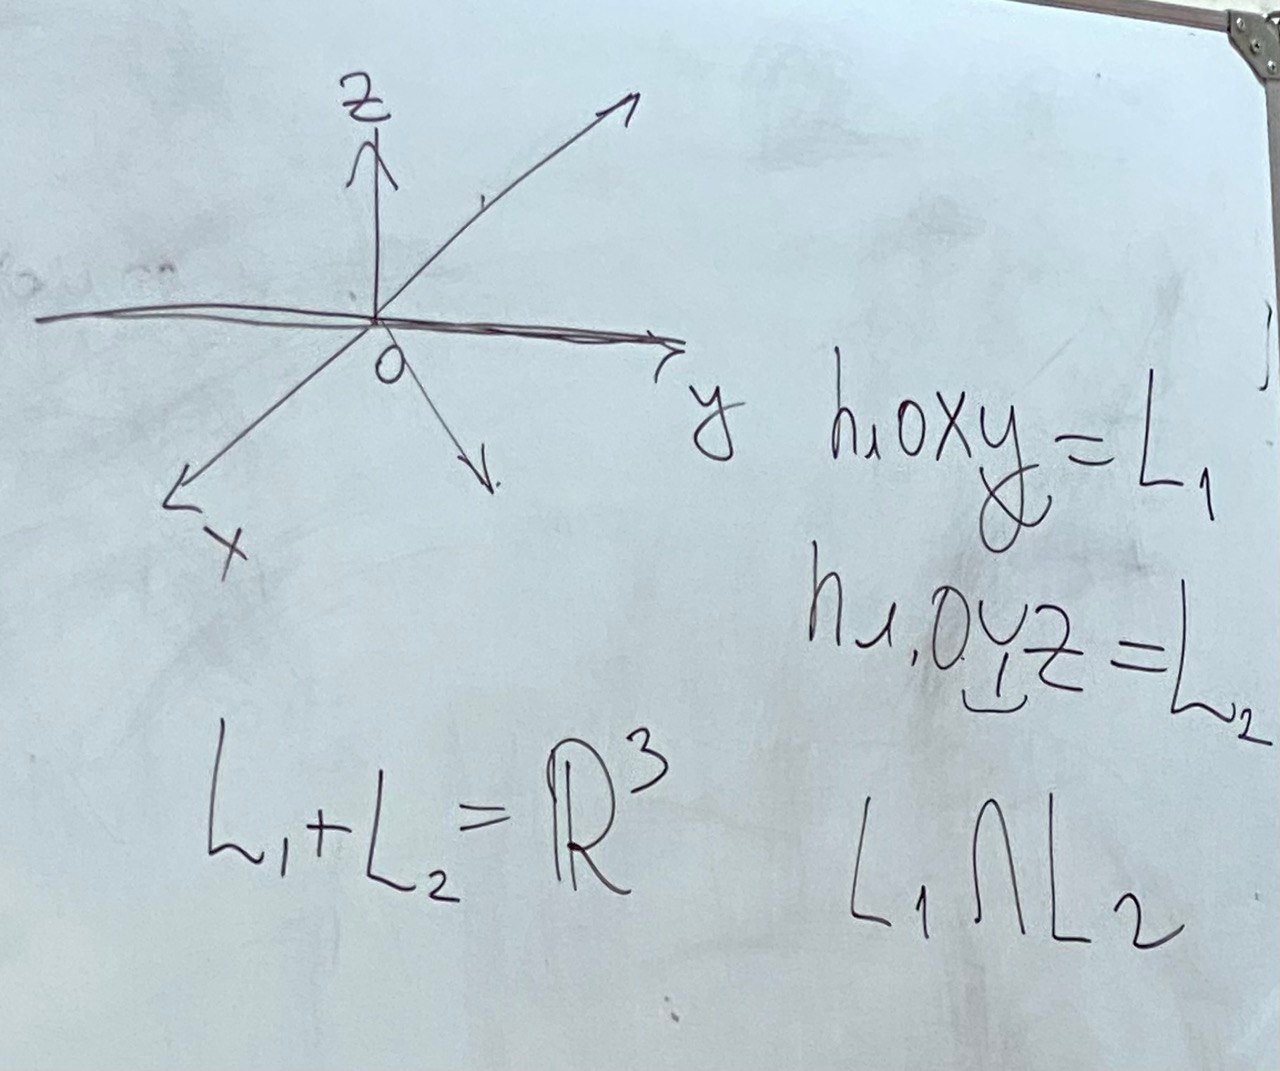 z
O
y
x
пл oxy = L₁
пл. oyz = L₂
L₁ + L₂ = ℝ³
L₁ ∩ L₂